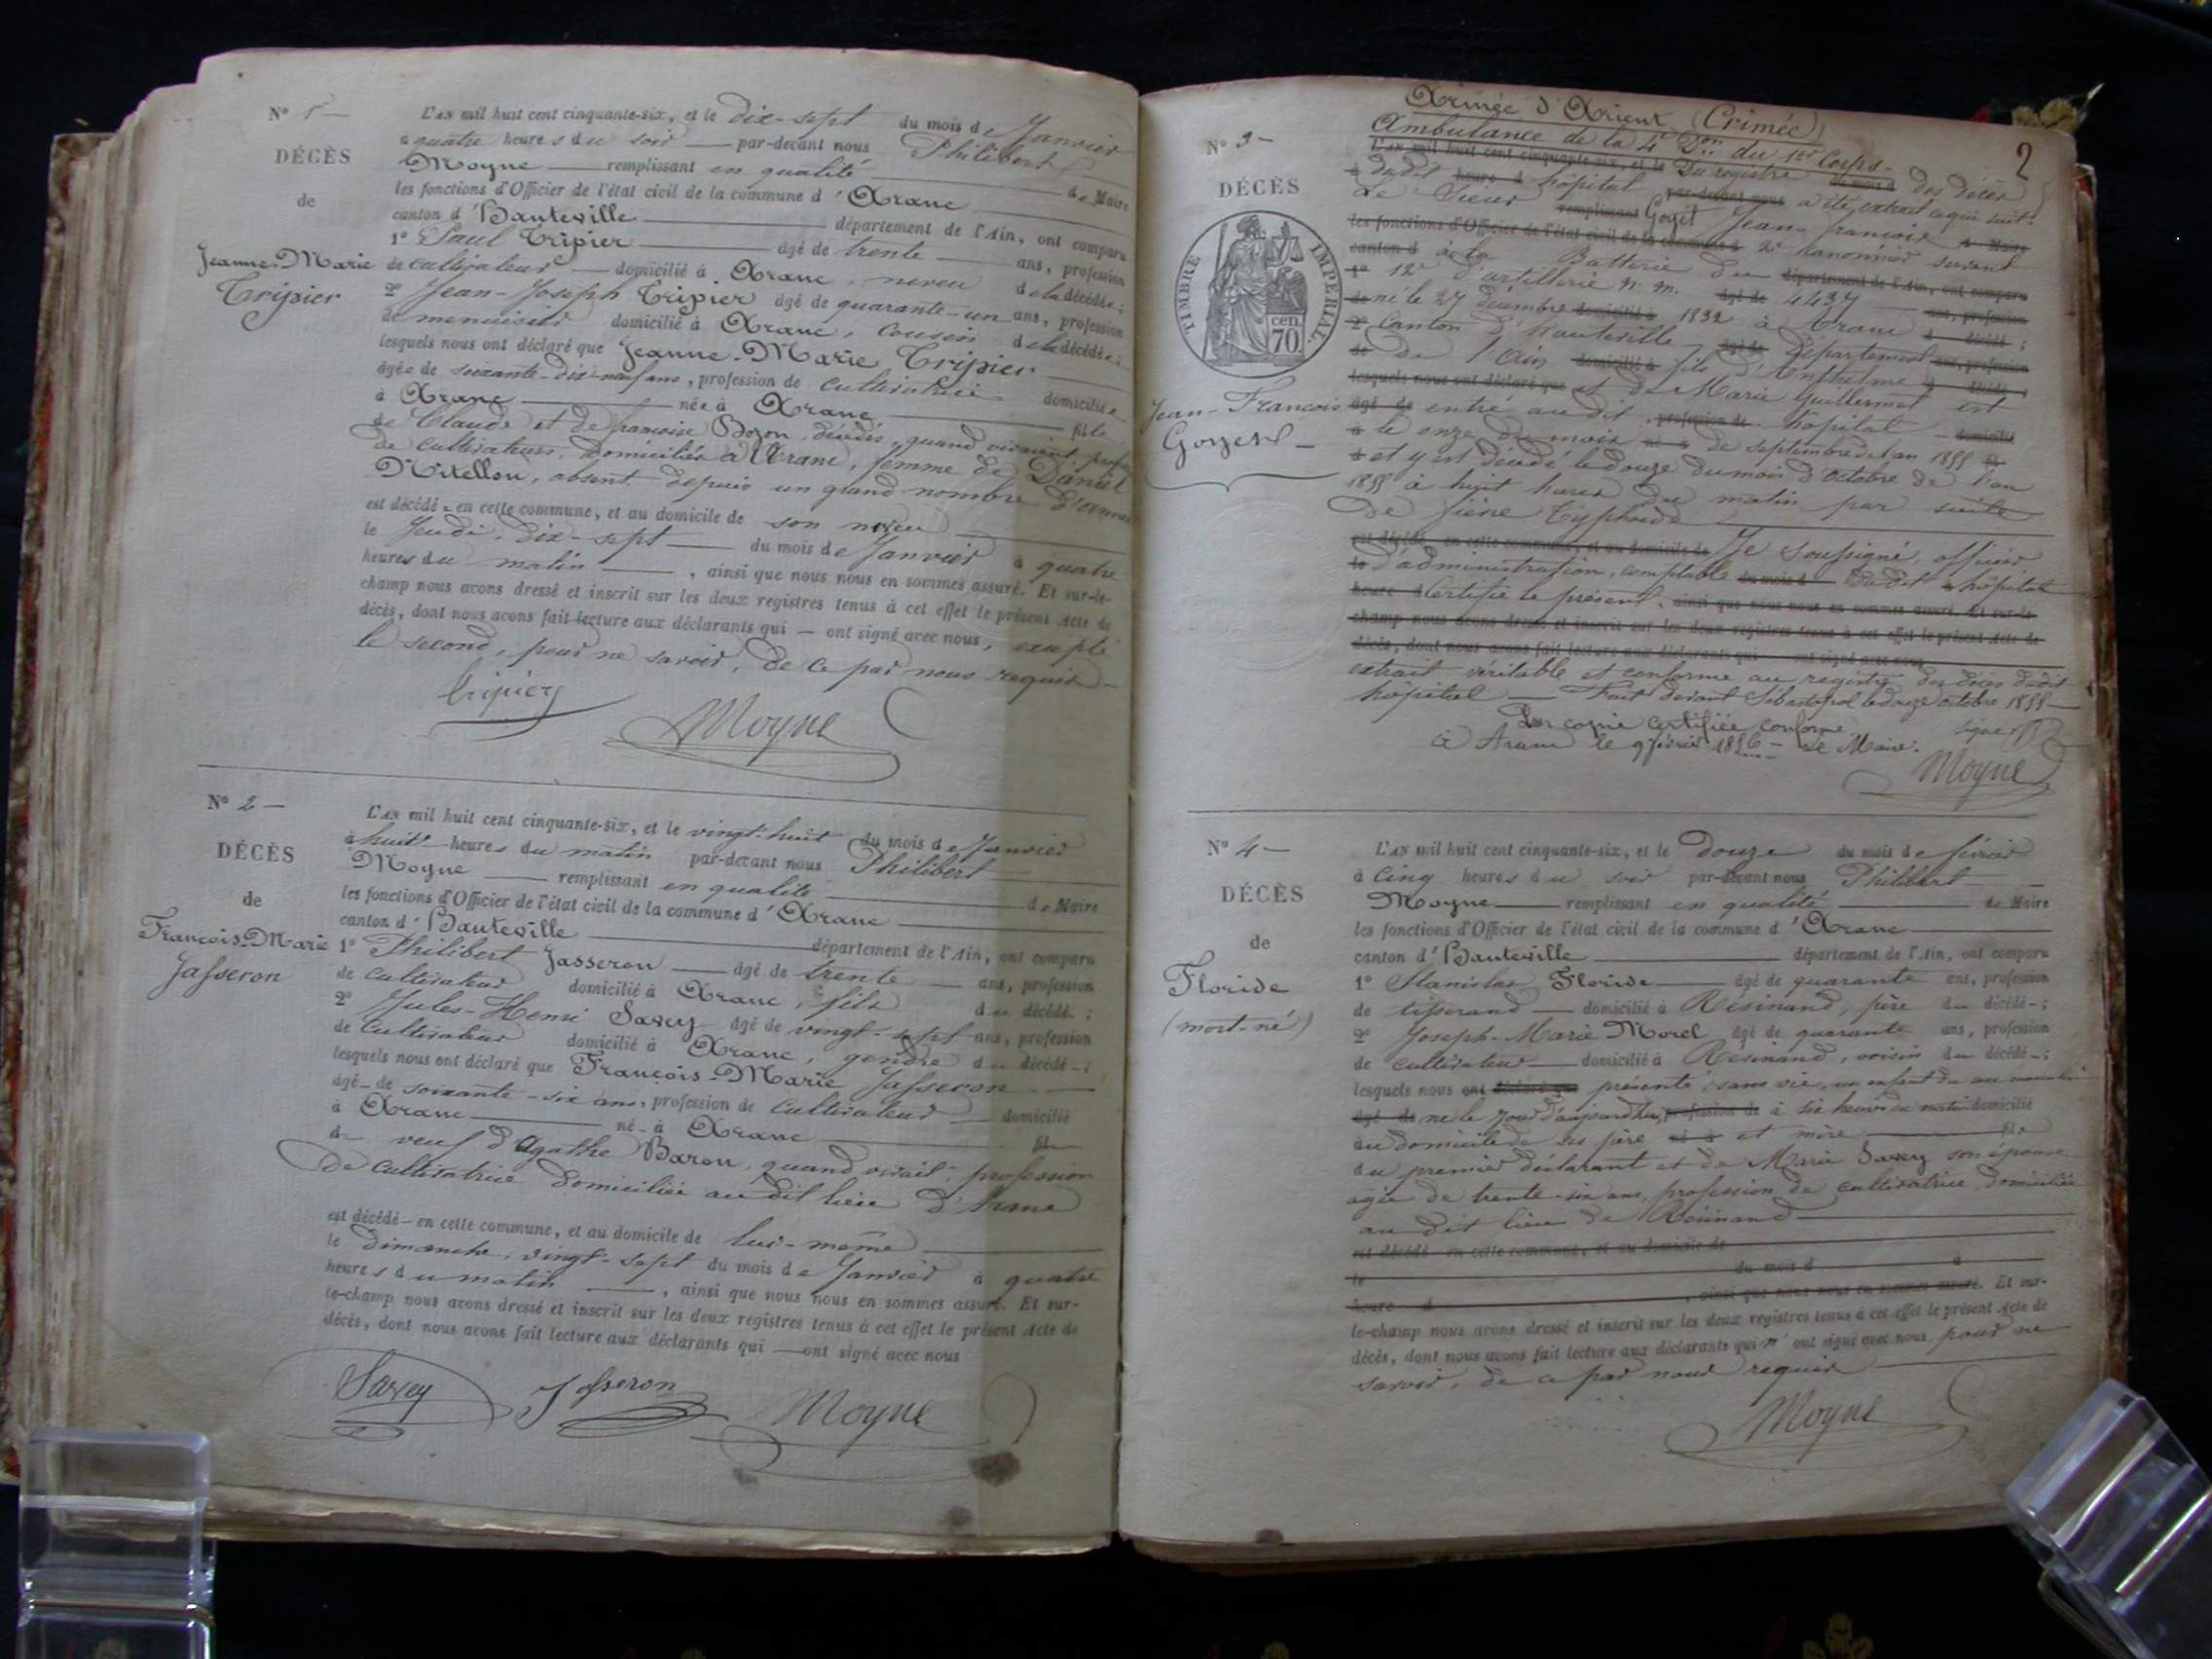 N° 1 —
DÉCÈS
de
Jeanne-Marie
Tripier
L'AN mil huit cent cinquante-six, et le dix-sept du mois de Janvier
à quatre heures du soir — par-devant nous Philibert
Moyne — remplissant en qualité — de Maire
les fonctions d'Officier de l'état civil de la commune d'Aranc
canton d'Hauteville — département de l'Ain, ont comparu
1° Paul Tripier — âgé de trente — ans, profession
de cultivateur — domicilié à Aranc, neveu de la décédée;
2° Jean-Joseph Tripier âgé de quarante-un ans, profession
de menuisier domicilié à Aranc, cousin de la décédée;
lesquels nous ont déclaré que Jeanne-Marie Tripier
âgée de soixante-dix-neuf ans, profession de cultivatrice domiciliée
à Aranc — née à Aranc — fille
de Claude et de françoise Bozon, décédés, quand vivaient profes
de cultivateurs, domiciliés à Aranc, femme de Daniel
Mitellon, absent depuis un grand nombre d'années
est décédée en cette commune, et au domicile de son neveu
le Jeudi, dix-sept — du mois de Janvier à quatre
heures du matin —, ainsi que nous nous en sommes assuré. Et sur-le-
champ nous avons dressé et inscrit sur les deux registres tenus à cet effet le présent Acte de
décès, dont nous avons fait lecture aux déclarants qui — ont signé avec nous, excepté
le second, pour ne savoir, de ce par nous requis —
Tripier
Moyne
N° 2 —
DÉCÈS
de
François-Marie
Jasseron
L'AN mil huit cent cinquante-six, et le vingt-huit du mois de Janvier
à huit heures du matin par-devant nous Philibert
Moyne — remplissant en qualité — de Maire
les fonctions d'Officier de l'état civil de la commune d'Aranc
canton d'Hauteville — département de l'Ain, ont comparu
1° Philibert Jasseron — âgé de trente — ans, profession
de cultivateur domicilié à Aranc, fils du décédé;
2° Jules-Henri Savey âgé de vingt-sept ans, profession
de cultivateur domicilié à Aranc, gendre du décédé;
lesquels nous ont déclaré que François-Marie Jasseron
âgé de soixante-six ans, profession de cultivateur — domicilié
à Aranc — né à Aranc — fils
de veuf d'Agathe Baron, quand vivait, profession
de cultivatrice domiciliée au dit lieu d'Aranc
est décédé en cette commune, et au domicile de lui-même
le Dimanche, vingt-sept du mois de Janvier à quatre
heures du matin —, ainsi que nous nous en sommes assuré. Et sur-
le-champ nous avons dressé et inscrit sur les deux registres tenus à cet effet le présent Acte de
décès, dont nous avons fait lecture aux déclarants qui — ont signé avec nous
Savey Jasseron Moyne
2
N° 3 —
DÉCÈS
TIMBRE IMPERIAL
70 cen
Jean-François
Goyet —
Armée d'Orient (Crimée)
Ambulance de la 4e Don du 1er Corps.
L'AN mil huit cent cinquante-six, et le Du registre du mois d des décès
à dudit heure d hôpital par-devant nous a été extrait ce qui suit:
Le Sieur remplissant Goyet Jean-françois de Maire
les fonctions d'Officier de l'état civil de la commune d 2e canonnier servant
canton d à la Batterie du département de l'Ain, ont comparu
1° 12e d'artillerie n. m. âgé de 4437 ans, profession
de né le 27 décembre domicilié à 1832 à Aranc d décédé;
2° Canton d'Hauteville âgé de Département ans, profession
de de l'Ain domicilié à fils d'Anthelme d décédé;
lesquels nous ont déclaré que et de Marie Guillermet est
âgé de entré au dit profession de hôpital — domicilié
à le onze du mois né à de septembre de l'an 1855 fil
d et y est décédé le douze du mois d'octobre de l'an
1855 à huit heures du matin par suite
de fièvre typhoïde
est décédé en cette commune, et au domicile de Je soussigné, officier
le d'administration, comptable du mois d dudit à hôpital
heure d Certifie le présent, ainsi que nous nous en sommes assuré. Et sur-le-
champ nous avons dressé et inscrit sur les deux registres tenus à cet effet le présent Acte de
décès, dont nous avons fait lecture aux déclarants qui ont signé avec nous
extrait véritable et conforme au registre des décès dudit
hôpital — Fait devant Sébastopol le douze octobre 1855 —
signé
Pour copie certifiée conforme
à Aranc le 9 février 1856 — Le Maire.
Moyne
N° 4 —
DÉCÈS
de
Floride
(mort-né)
L'AN mil huit cent cinquante-six, et le douze du mois de février
à cinq heures du soir par-devant nous Philibert
Moyne — remplissant en qualité — de Maire
les fonctions d'Officier de l'état civil de la commune d'Aranc
canton d'Hauteville — département de l'Ain, ont comparu
1° Stanislas Floride — âgé de quarante ans, profession
de tisserand — domicilié à Résinand, père du décédé;
2° Joseph-Marie Morel âgé de quarante ans, profession
de cultivateur — domicilié à Résinand, voisin du décédé;
lesquels nous ont déclaré que présenté, sans vie, un enfant du sexe masculin
âgé de né le jour d'aujourd'hui, profession de à six heures du matin domicilié
au domicile de ses père né à et mère — fils
du premier déclarant et de Marie Savey son épouse
agée de trente-six ans, profession de cultivatrice domiciliée
au dit lieu de Résinand
est décédé en cette commune, et au domicile de
le du mois d à
heure d , ainsi que nous nous en sommes assuré. Et sur-
le-champ nous avons dressé et inscrit sur les deux registres tenus à cet effet le présent Acte de
décès, dont nous avons fait lecture aux déclarants qui n'ont signé avec nous pour ne
savoir, de ce par nous requis
Moyne